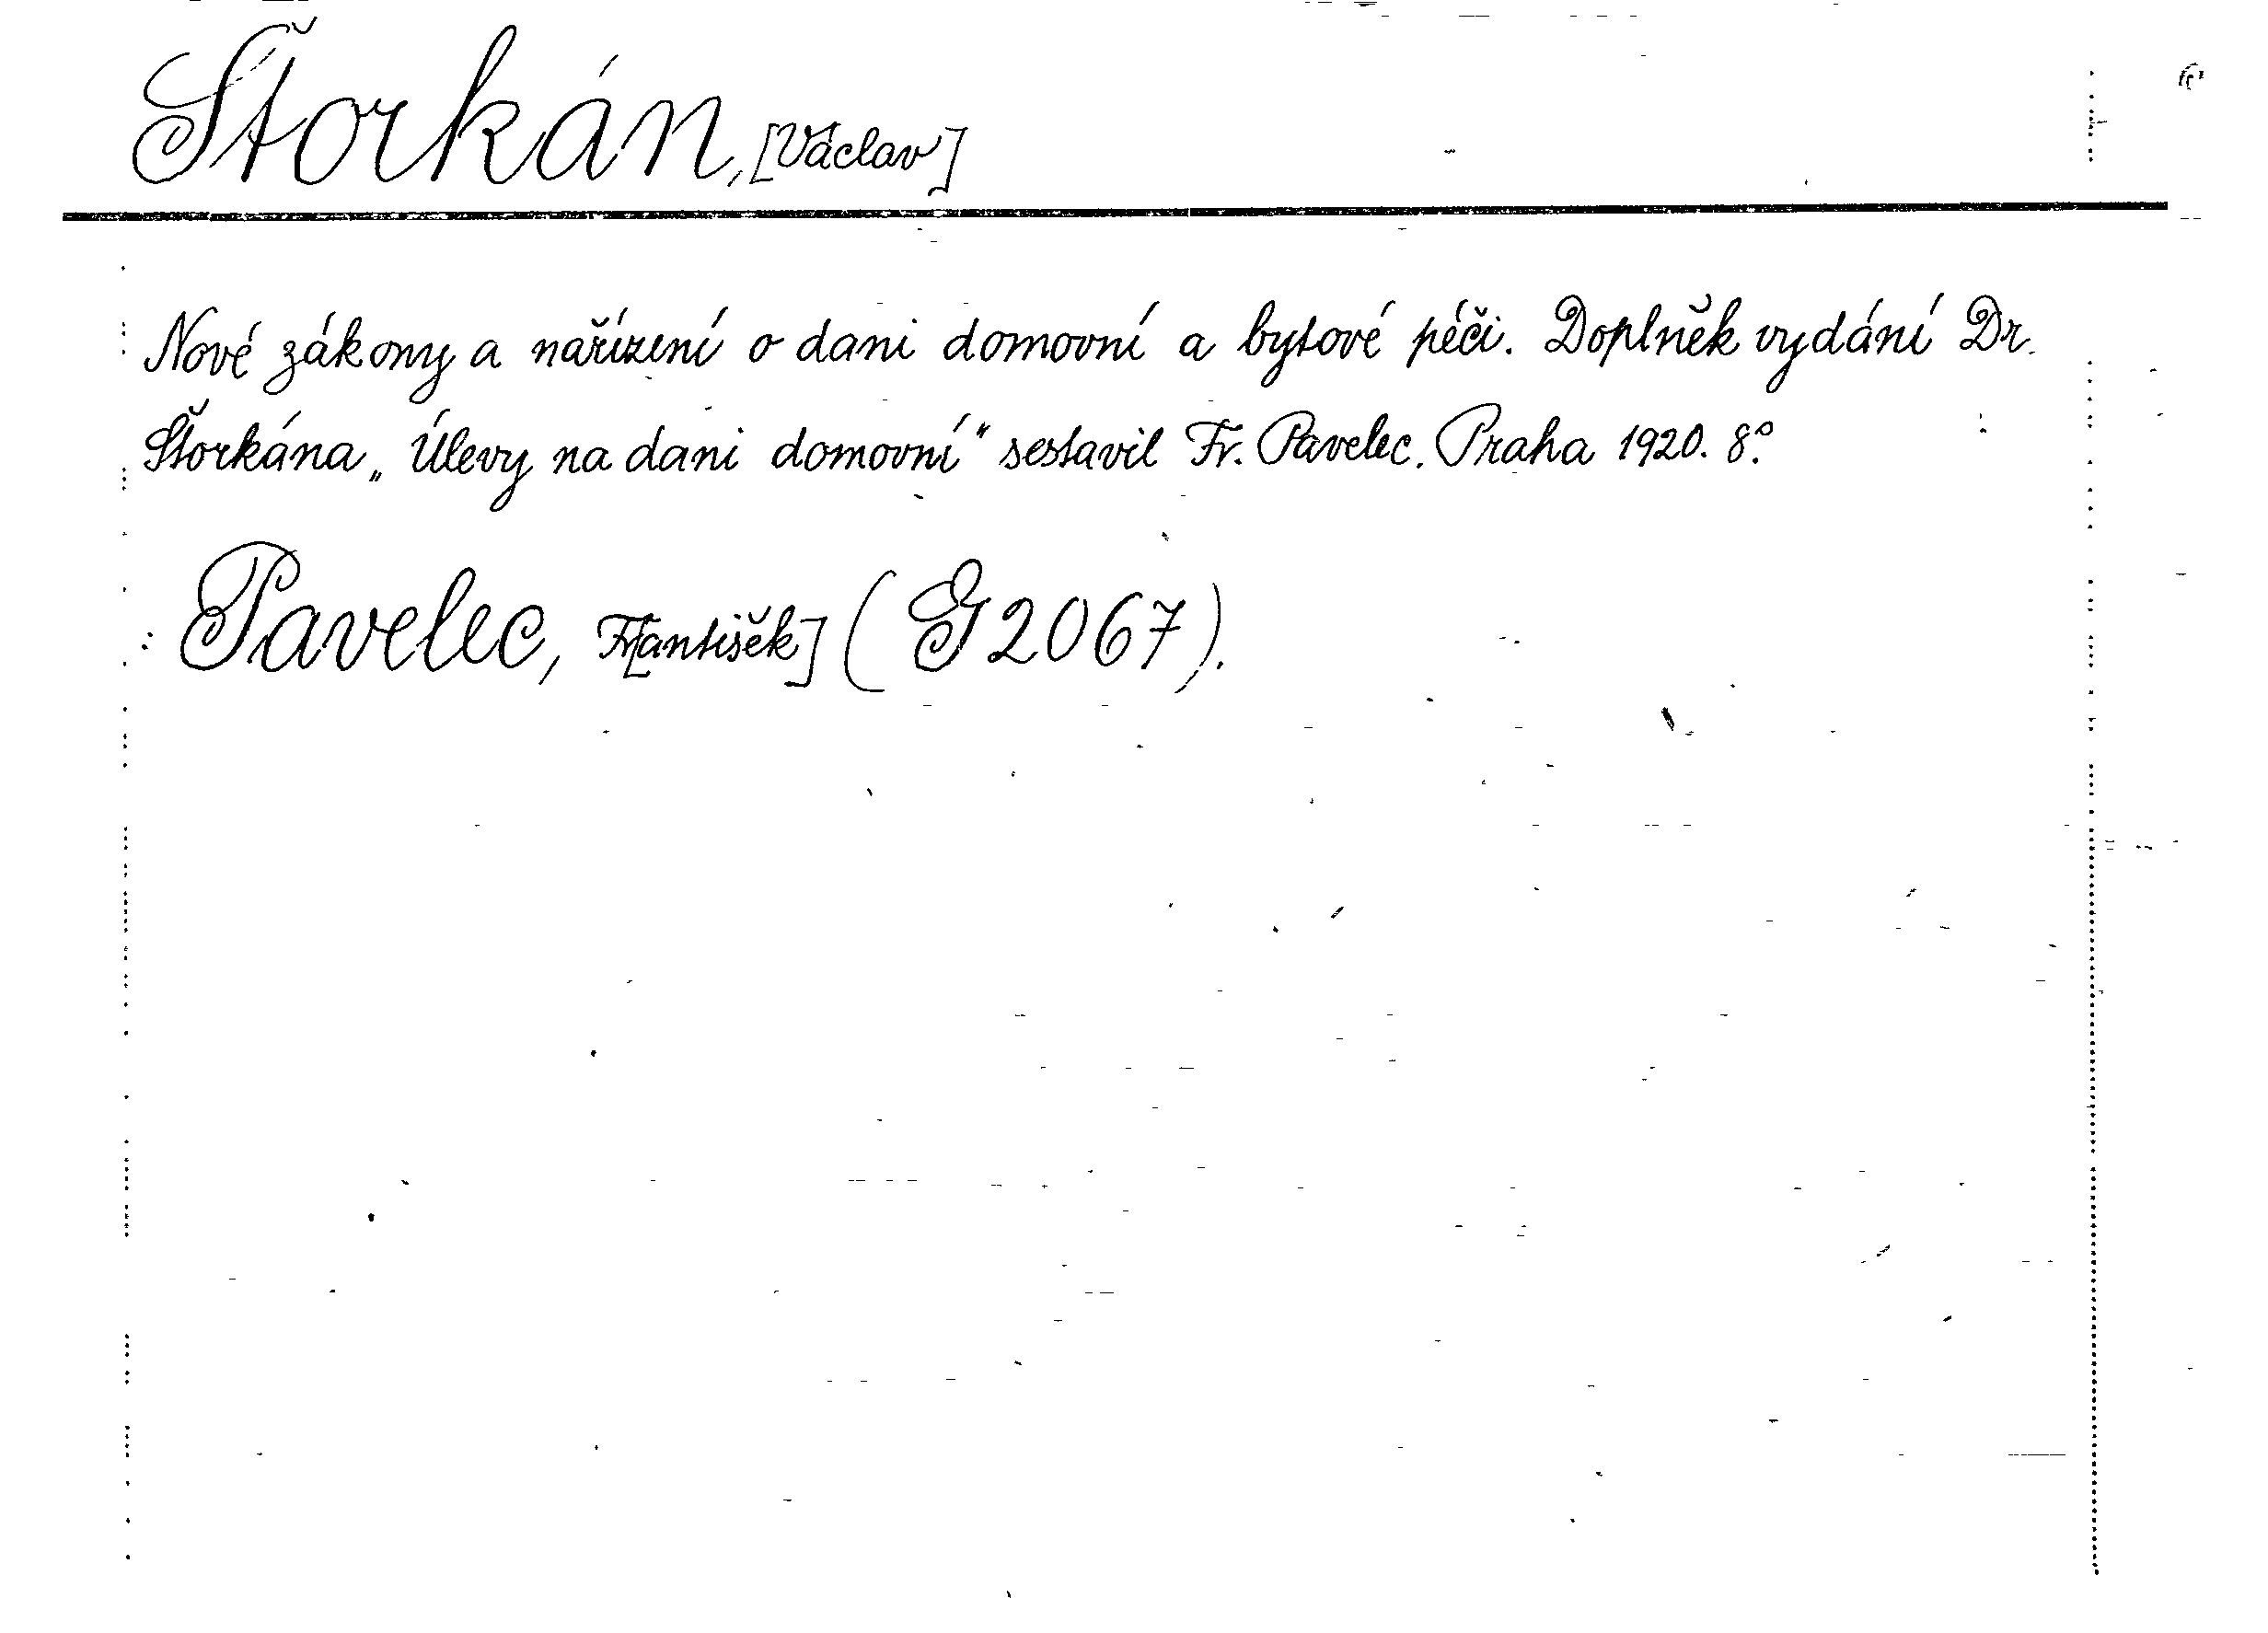 Štorkán, [Václav]
Nové zákony a nařízení o dani domovní a bytové péči. Doplněk vydání Dr.
Štorkána „Úlevy na dani domovní“ sestavil Fr. Pavelec. Praha 1920. 8°.
: Pavelec, Fr[antišěk] (G 2067).